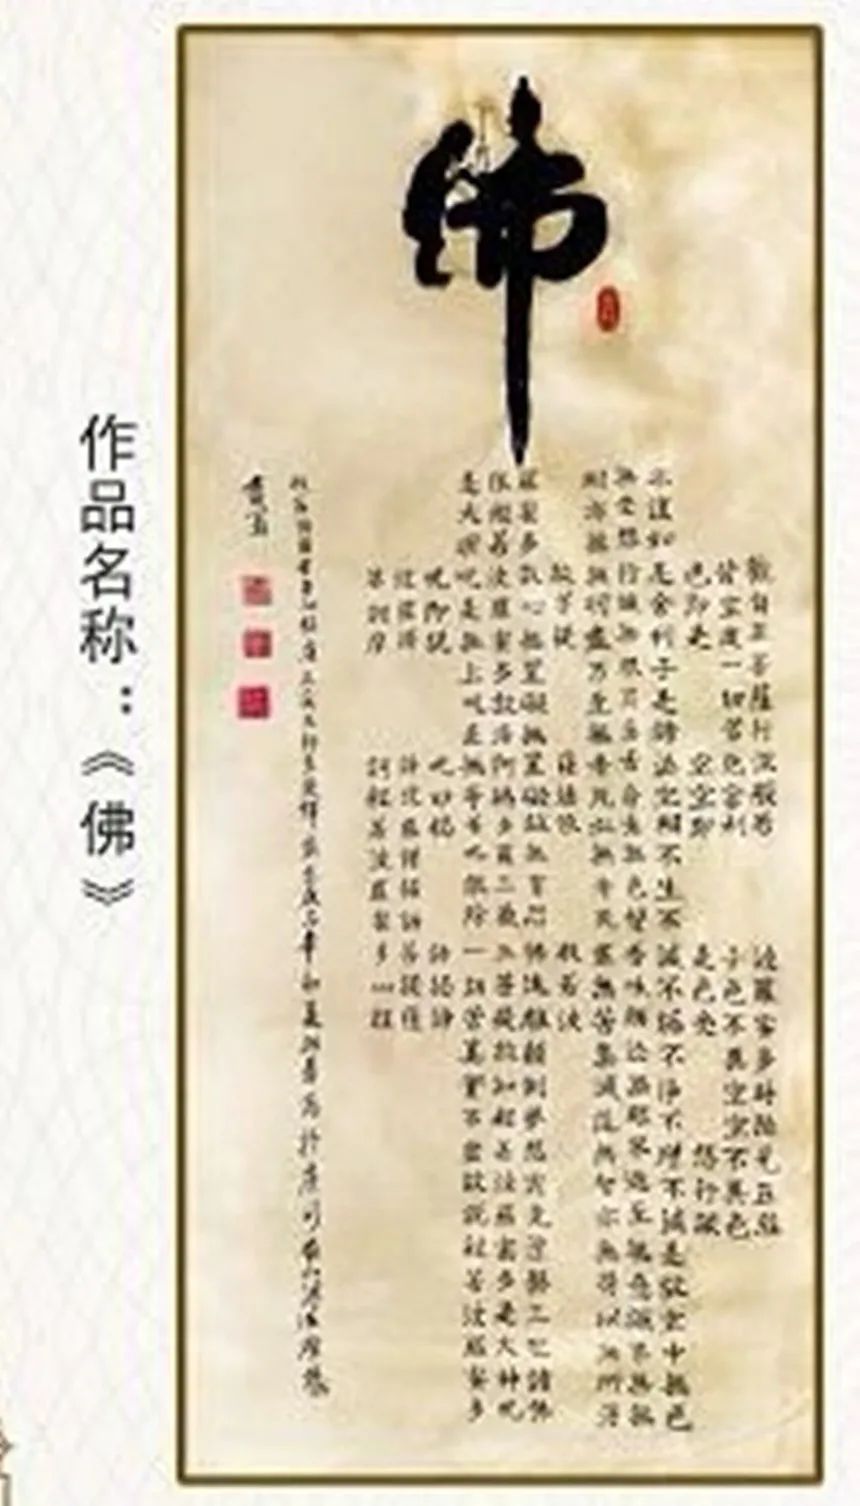 佛
觀自在菩薩行深般若波羅蜜多時照見五蘊
皆空度一切苦厄舍利子色不異空空不異色
色即是空空即是色受想行識
亦復如是舍利子是諸法空相不生不滅不垢不淨不增不減是故空中無色
無受想行識無眼耳鼻舌身意無色聲香味觸法無眼界乃至無意識界無無
明亦無無明盡乃至無老死亦無老死盡無苦集滅道無智亦無得以無所得
故菩提薩埵依般若波
羅蜜多故心無罣礙無罣礙故無有恐怖遠離顛倒夢想究竟涅槃三世諸佛
依般若波羅蜜多故得阿耨多羅三藐三菩提故知般若波羅蜜多是大神咒
是大明咒是無上咒是無等等咒能除一切苦真實不虛故說般若波羅蜜多
咒即說咒曰揭諦揭諦
波羅揭諦波羅僧揭諦菩提薩
婆訶摩訶般若波羅蜜多心經
作品名称：《佛》